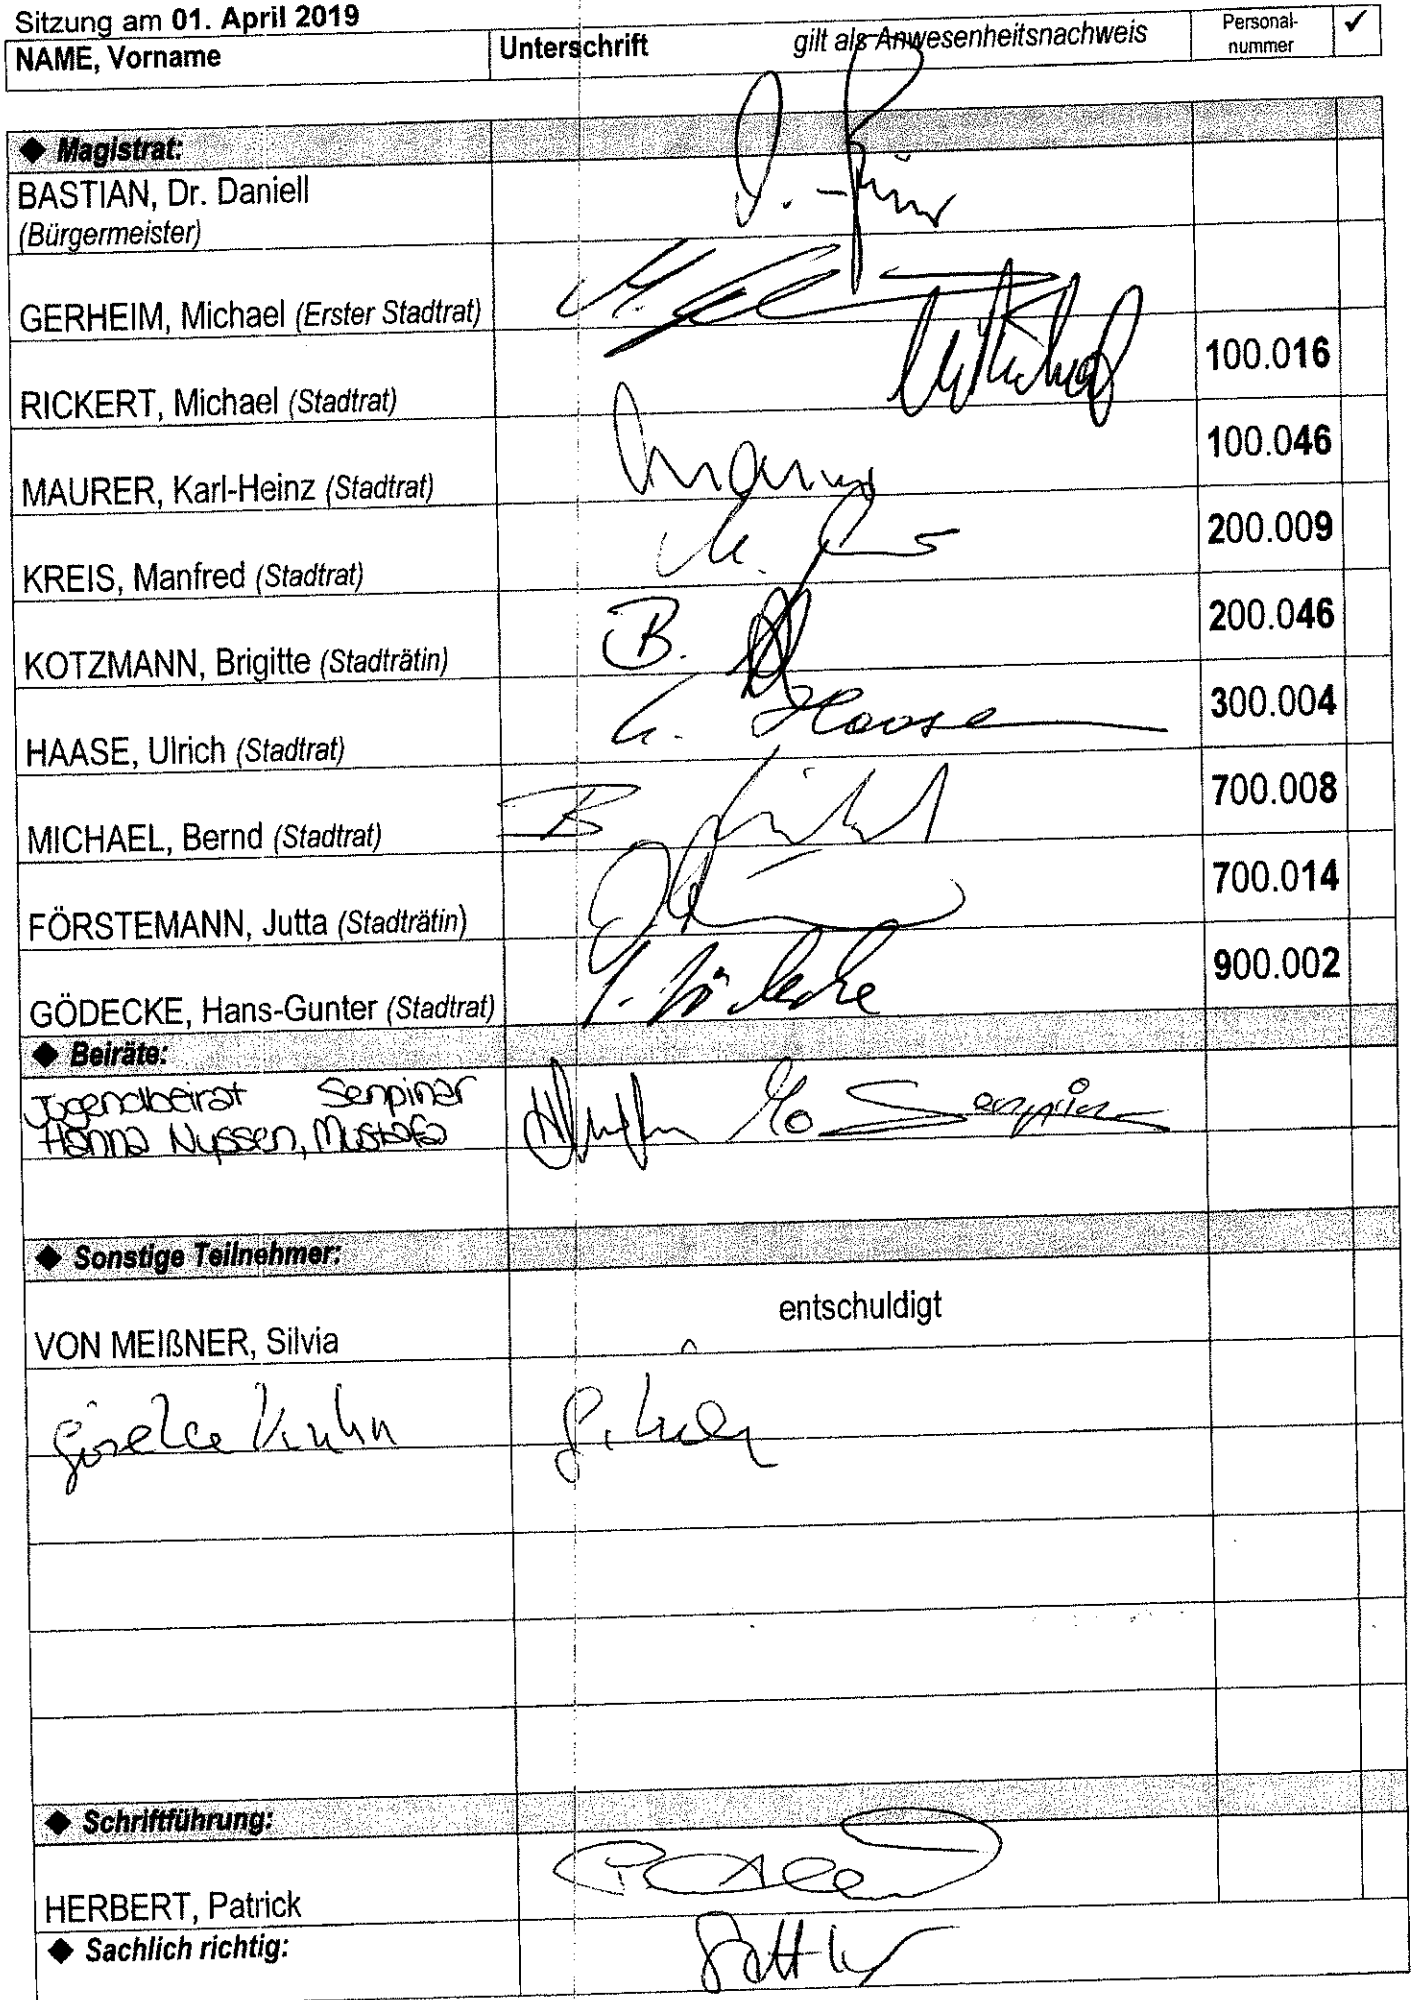 Sitzung am 01. April 2019
NAME, Vorname Unterschrift gilt als Anwesenheitsnachweis Personal-
nummer ✓
◆ Magistrat:
BASTIAN, Dr. Daniell
(Bürgermeister)
GERHEIM, Michael (Erster Stadtrat)
RICKERT, Michael (Stadtrat) 100.016
MAURER, Karl-Heinz (Stadtrat) 100.046
KREIS, Manfred (Stadtrat) 200.009
KOTZMANN, Brigitte (Stadträtin) B. 200.046
HAASE, Ulrich (Stadtrat) Haase 300.004
MICHAEL, Bernd (Stadtrat) B 700.008
FÖRSTEMANN, Jutta (Stadträtin) 700.014
GÖDECKE, Hans-Gunter (Stadtrat) Gödecke 900.002
◆ Beiräte:
Jugendbeirat Senpinar
Hanna Nyssen, Mustafa Senpinar
◆ Sonstige Teilnehmer:
VON MEIßNER, Silvia entschuldigt
Gisela Kuhn
◆ Schriftführung:
HERBERT, Patrick
◆ Sachlich richtig: